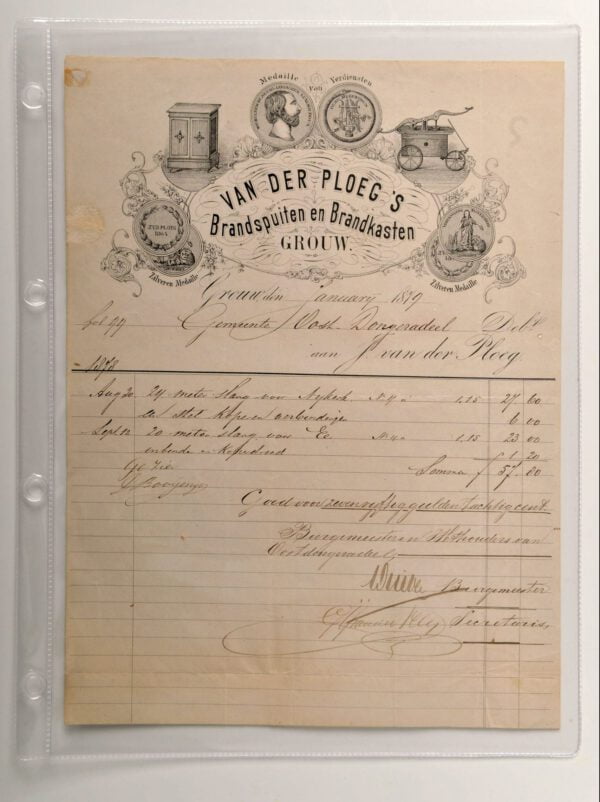 Medaille van Verdiensten
VAN DER PLOEG'S
Brandspuiten en Brandkasten
GROUW.
Zilveren Medaille
Zilveren Medaille
Grouw den January 1879
fol 99 Gemeente Oost-Dongeradeel Debt
aan J van der Ploeg.
1878
Aug 20 24 meter slang voor Nykerk N 4 a 1,15 27 60
en stel kopere verbindingen 6 00
Sept 12 20 meter slang voor Ee N 4 a 1,15 23 00
inbinde en koperdraad f 1 20
Somma f 57 80
Goed voor zevenvyftig guelden tachtig cent.
Burgemeester en Wethouders van
Oostdongeradeel
Burgemeester
Secretaris,